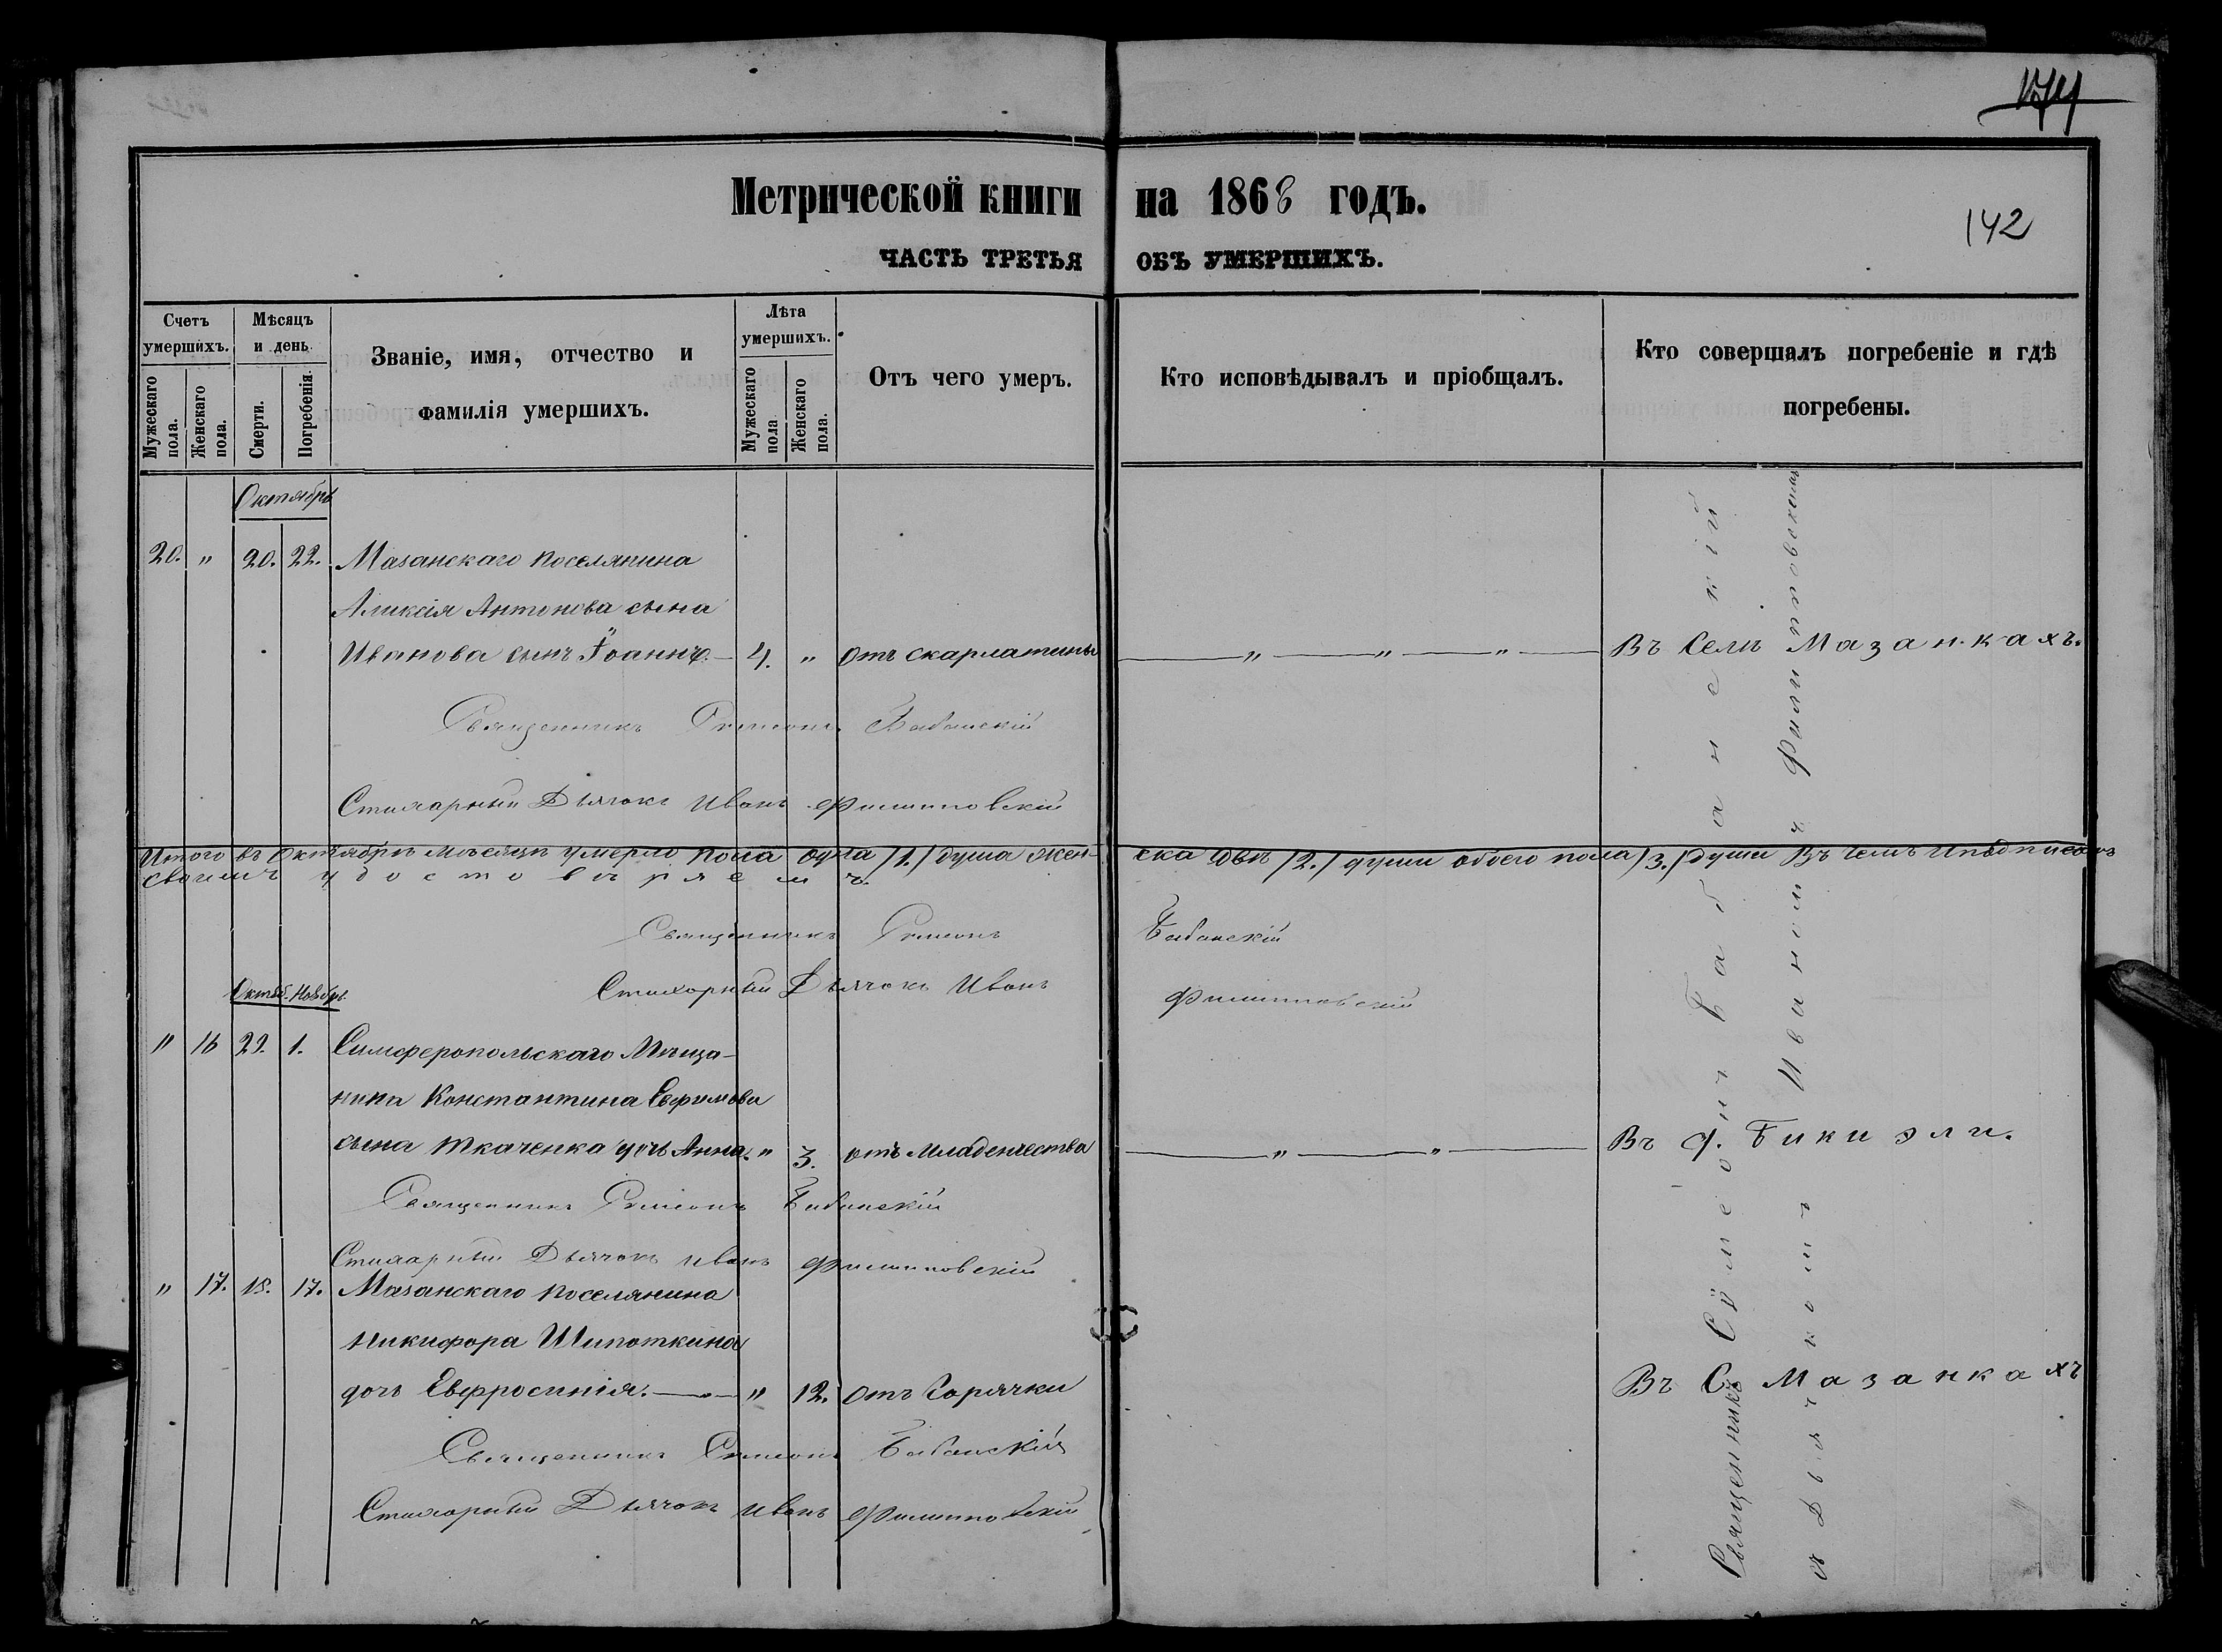 142
Метрической книги на 1868 годъ.
ЧАСТЬ ТРЕТЬЯ ОБЪ УМЕРШИХЪ.
Счетъ умершихъ.
Мужескаго пола.
Женскаго пола.
Мѣсяцъ и день
Смерти.
Погребенія.
Званіе, имя, отчество и
фамилія умершихъ.
Лѣта умершихъ.
Мужескаго пола
Женскаго пола.
Отъ чего умеръ.
Кто исповѣдывалъ и пріобщалъ.
Кто совершалъ погребеніе и гдѣ
погребены.
Октябрь
20. " 20. 22. Мазанскаго поселянина
Аликсія Антонова сына
Иванова сынъ Іоаннъ. 4. " отъ скарлатины " " " Въ Селѣ Мазанкахъ.
Священникъ Симеонъ Бабанскій
Стихарный Дьячокъ Иванъ Филиповскій
Итого въ Октябрѣ мѣсяцѣ умерло пола одна /1./ душа жен- ска двѣ /2./ души обоего пола /3./ души Въ чемъ и подписомъ
своимъ удостовѣряемъ.
Священникъ Симеонъ Бабанскій
Стихарный Дьячокъ Иванъ Филиповскій
Октяб. Ноябрь.
" 16 29. 1. Симферопольскаго Мѣща-
нина Константина Евфимова
сына Ткаченка дочь Анна. " 3. отъ младенчества " " Въ д. Бики эли.
Священникъ Симеонъ Бабанскій
Стихарный Дьячокъ Иванъ Филиповскій
" 17. 15. 17. Мазанскаго поселянина
Никифора Шипоткина
дочь Евфросинія. " 12. отъ Горячки Въ С. Мазанкахъ
Священникъ Симеонъ Бабанскій
Стихарный Дьячокъ Иванъ Филиповскій
Священникъ Сѵмеонъ Бабанскій
съ Дьячкомъ Иваномъ Филипповскимъ